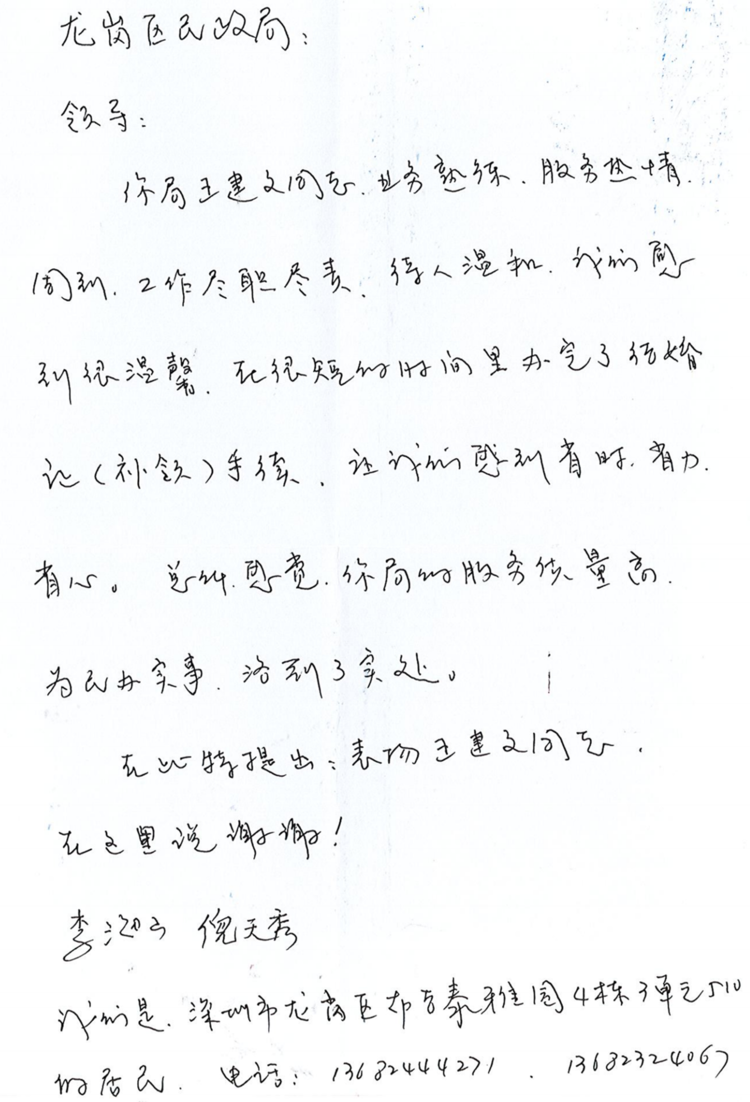 龙岗区民政局：
领导：
你局王建文同志.业务熟练.服务热情.
周到.工作尽职尽责.待人温和.我们感
到很温馨.在很短的时间里办完了结婚
证（补领）手续.让我们感到省时.省力.
省心。总体感觉.你局的服务质量高.
为民办实事.落到了实处。
在此特提出：表扬王建文同志.
在这里说谢谢！
李 倪天秀
我们是.深圳市龙岗区布吉泰雅园4栋3单元510
的居民.电话：13682444271.13682324067